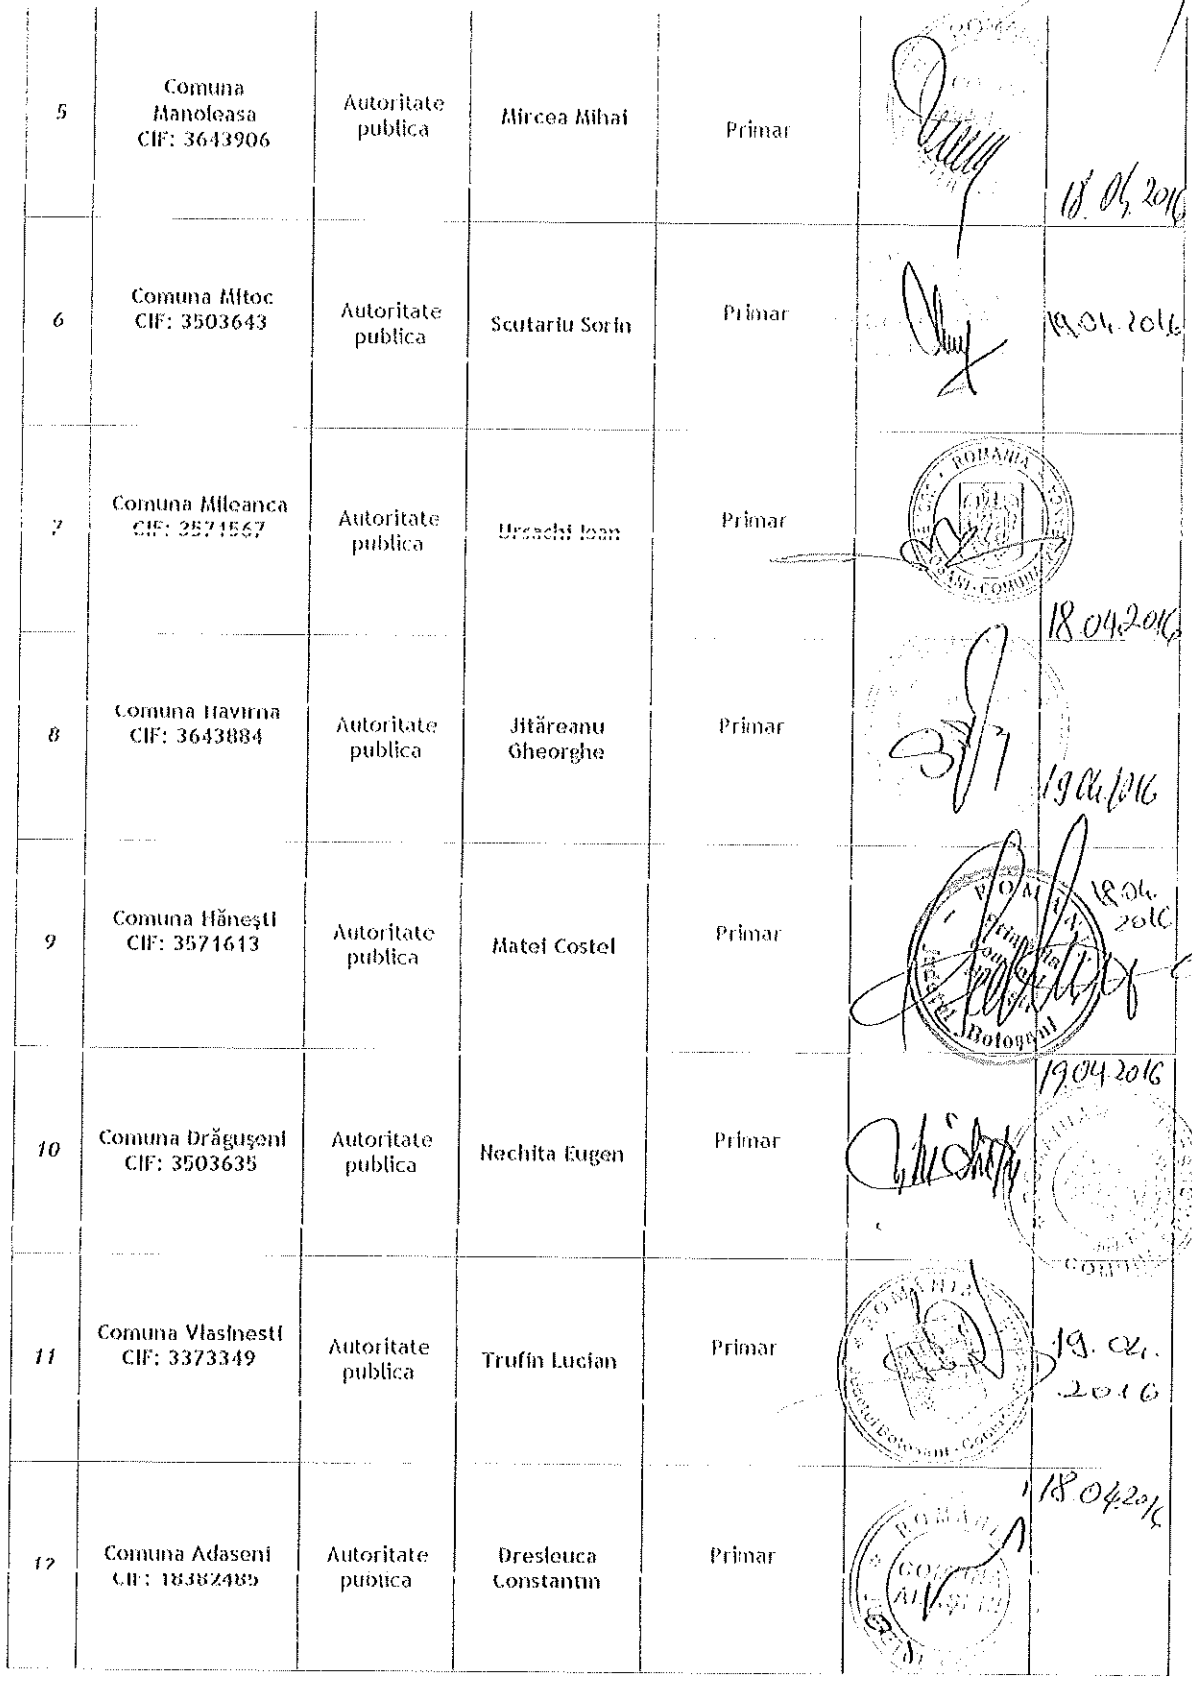 5
Comuna
Manoleasa
CIF: 3643906
Autoritate
publica
Mircea Mihai
Primar
18.04.2016
6
Comuna Mitoc
CIF: 3503643
Autoritate
publica
Scutariu Sorin
Primar
19.04.2016
7
Comuna Mileanca
CIF: 3571567
Autoritate
publica
Ursachi Ioan
Primar
ROMANIA
18.04.2016
8
Comuna Havirna
CIF: 3643884
Autoritate
publica
Jităreanu
Gheorghe
Primar
9
Comuna Hănești
CIF: 3571613
Autoritate
publica
Matei Costel
Primar
18.04.
2016
Botoșani
19.04.2016
10
Comuna Drăgușeni
CIF: 3503635
Autoritate
publica
Nechita Eugen
Primar
11
Comuna Vlasinesti
CIF: 3373349
Autoritate
publica
Trufin Lucian
Primar
ROMANIA
19.04.
2016
12
Comuna Adaseni
CIF: 18382485
Autoritate
publica
Dresleuca
Constantin
Primar
18.04.2016
ROMANIA
COMUNA